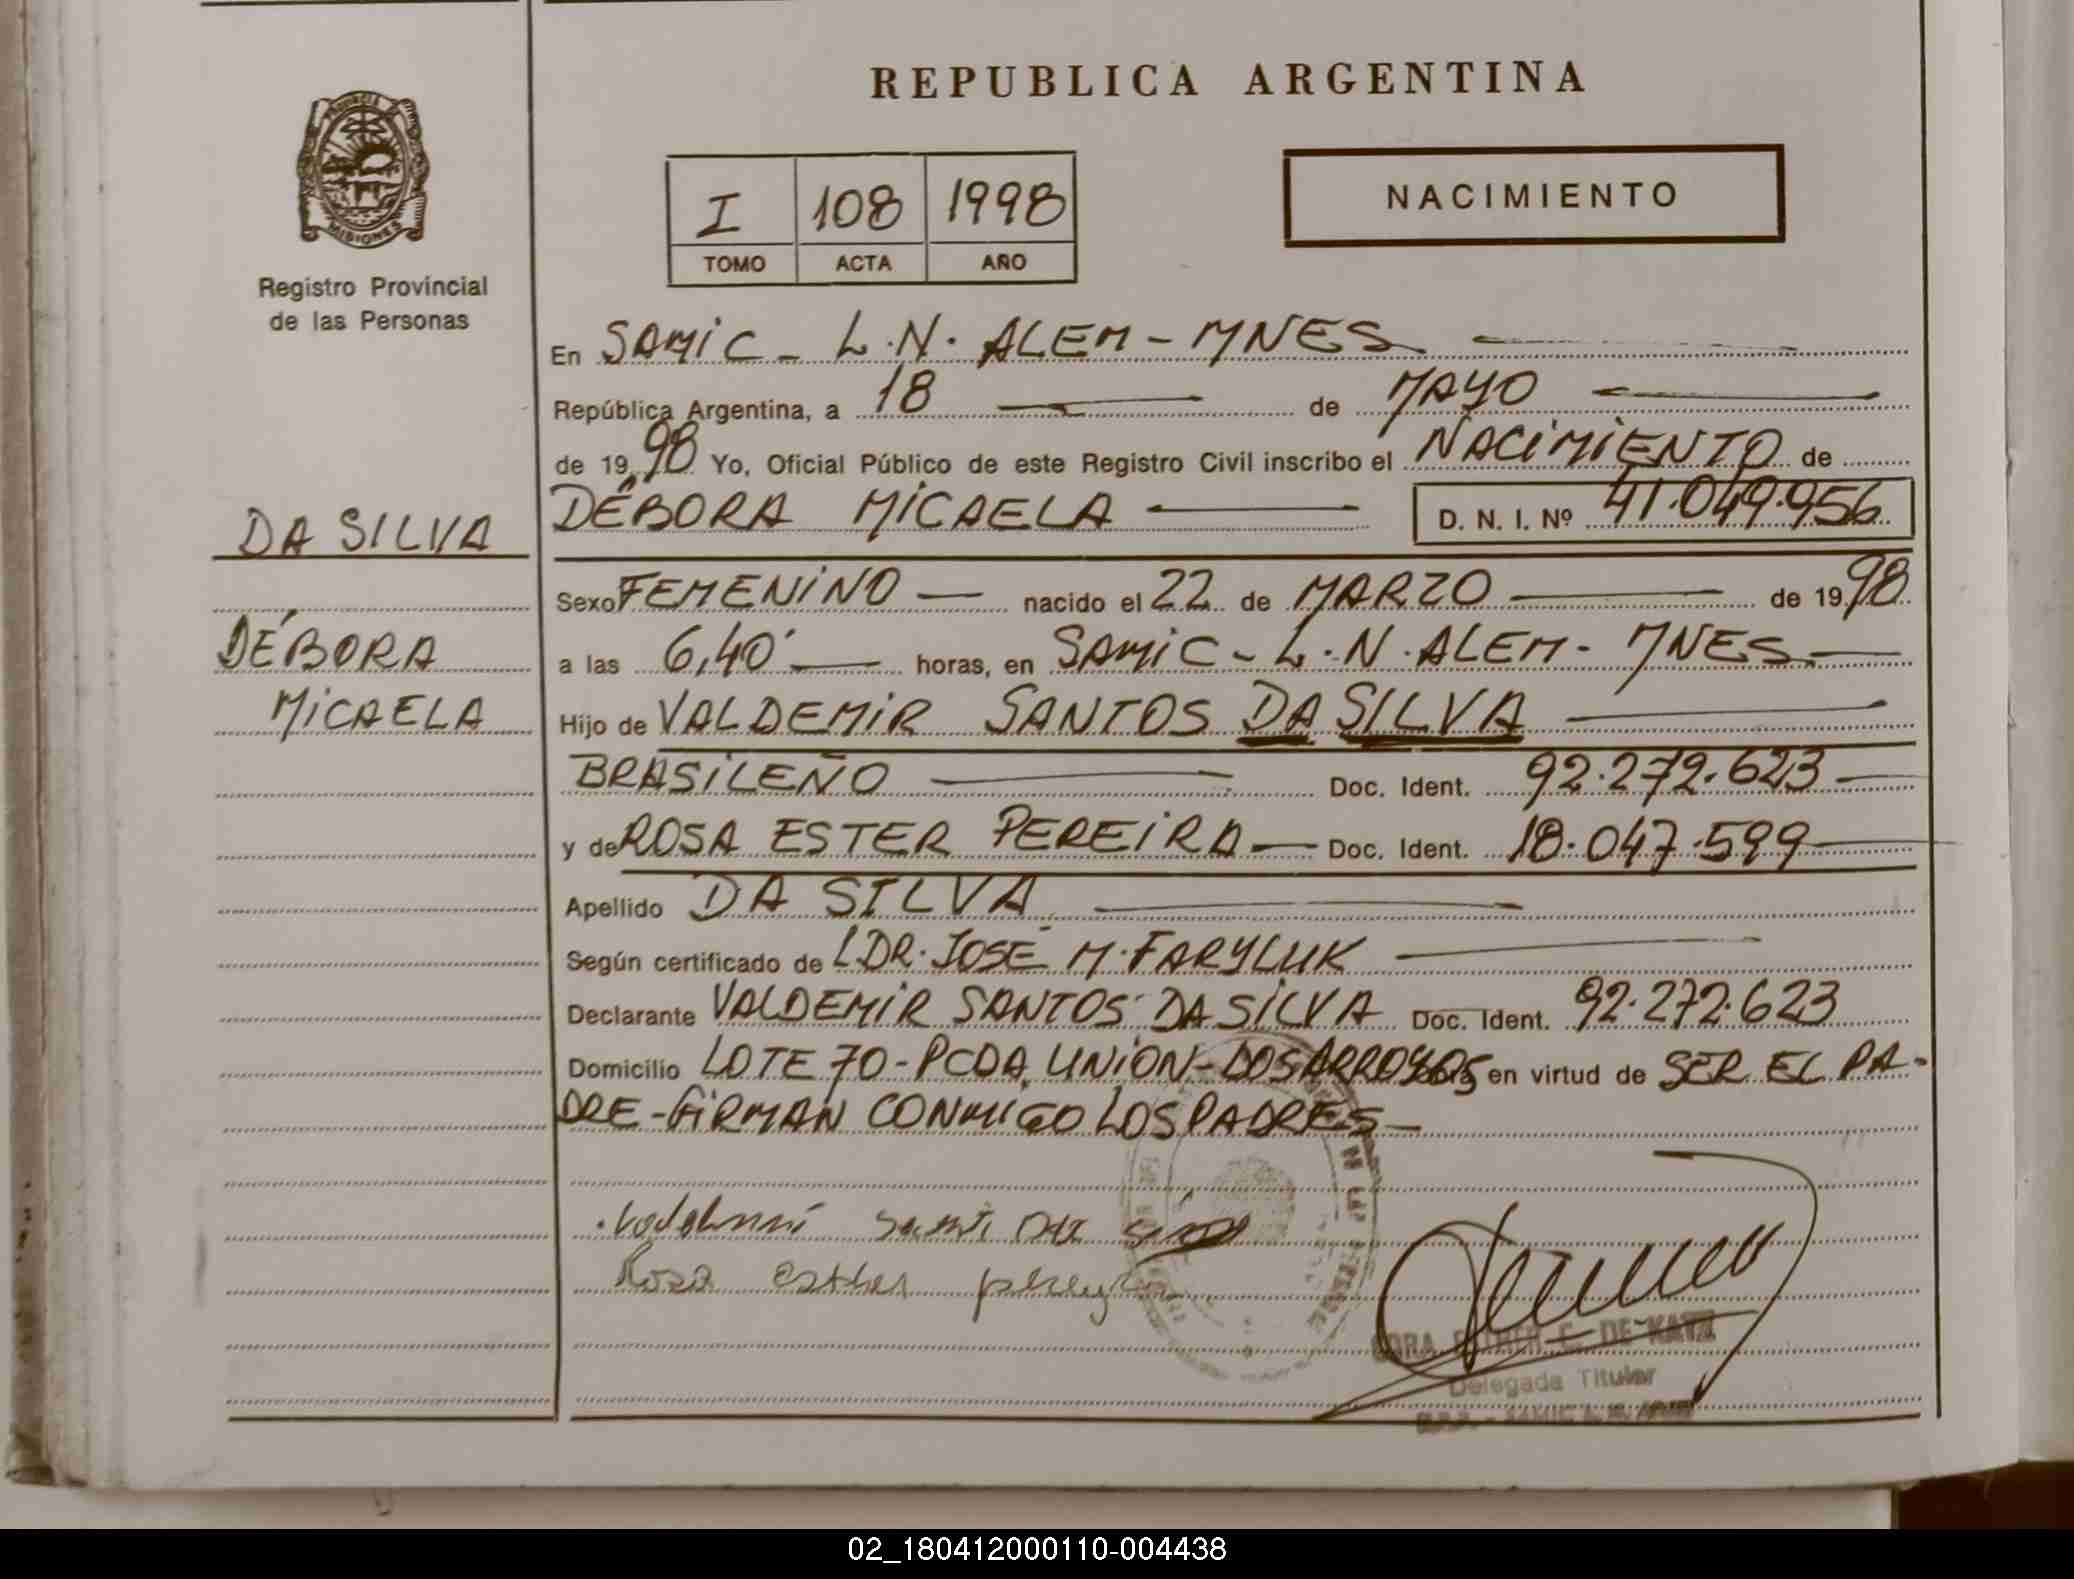 REPUBLICA ARGENTINA
PROVINCIA DE
MISIONES
Registro Provincial
de las Personas
I 108 1998
TOMO ACTA AÑO
NACIMIENTO
En SAMIC - L.N. ALEM - MNES
República Argentina, a 18 de MAYO
de 1998 Yo, Oficial Público de este Registro Civil inscribo el NACIMIENTO de
DÉBORA MICAELA D. N. I. Nº 41.049.956
DA SILVA
DÉBORA
MICAELA
Sexo FEMENINO nacido el 22 de MARZO de 1998
a las 6,40' horas, en SAMIC - L.N. ALEM - MNES
Hijo de VALDEMIR SANTOS DA SILVA
BRASILEÑO Doc. Ident. 92.272.623
y de ROSA ESTER PEREIRA Doc. Ident. 18.047.599
Apellido DA SILVA
Según certificado de DR. JOSÉ M. FARYLUK
Declarante VALDEMIR SANTOS DA SILVA Doc. Ident. 92.272.623
Domicilio LOTE 70 - PCDA. UNION - LOS ARROYOS en virtud de SER EL PA-
DRE - FIRMAN CONMIGO LOS PADRES
Rosa esther pereyra
ESTHER C. DE KATZ
Delegada Titular
02_180412000110-004438